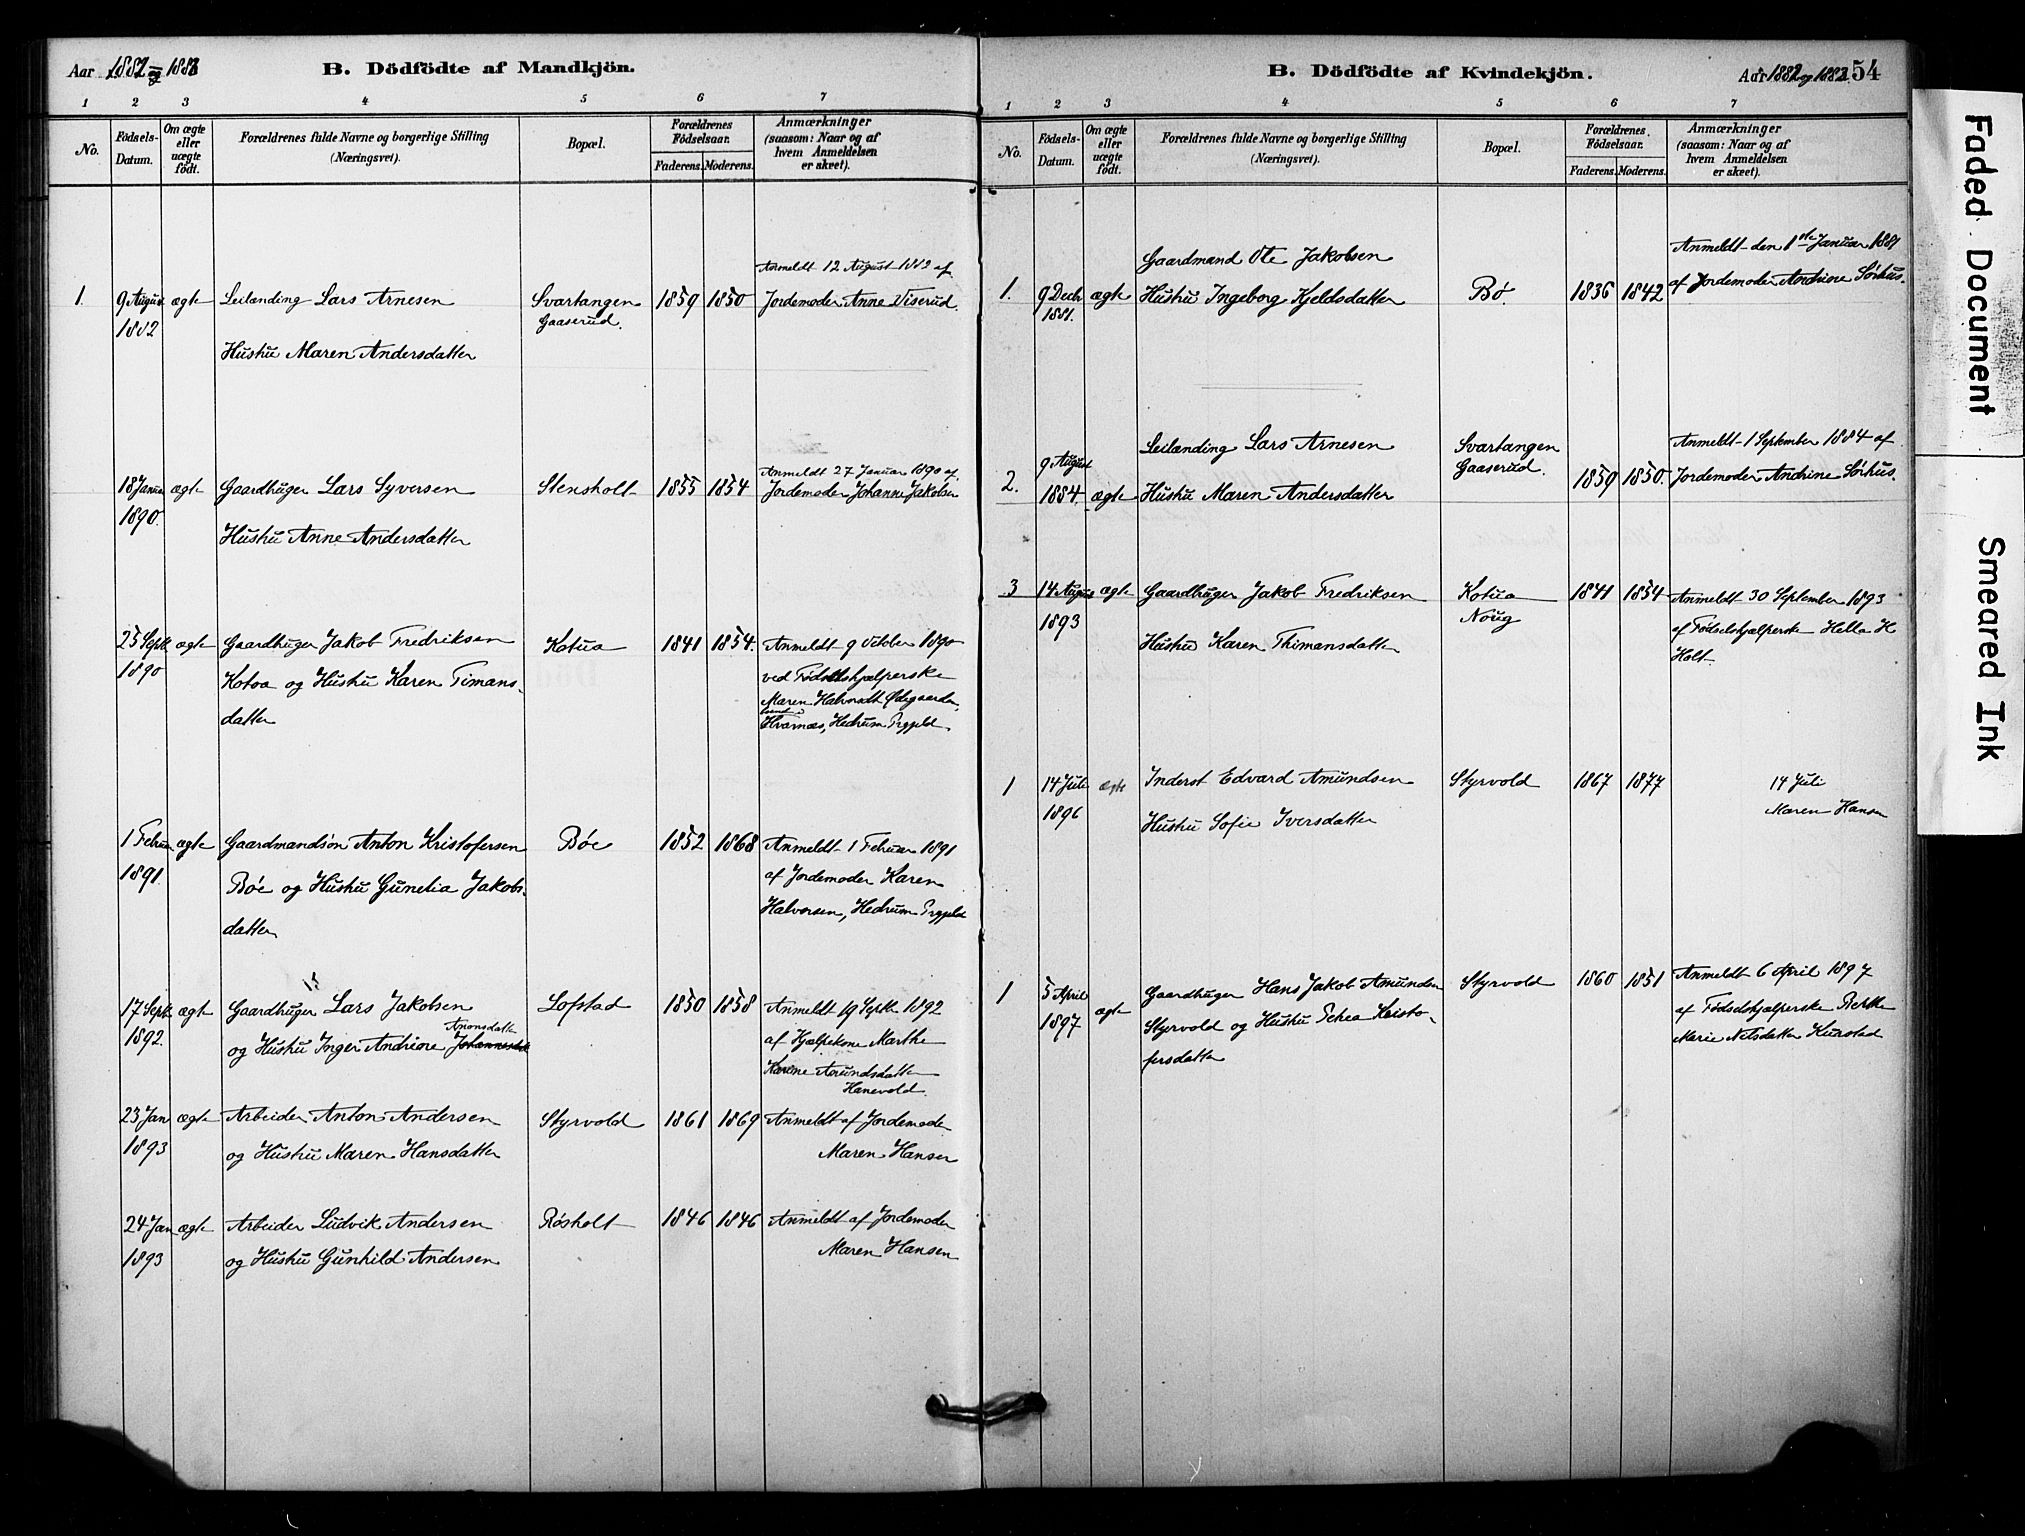 Aar 1882 og 1883
B. Dödfödte af Mandkjön.
1 2 3 4 5 6 7
No.
Födsels-Datum.
Om ægte eller uægte födt.
Forældrenes fulde Navne og borgerlige Stilling (Næringsvei).
Bopæl.
Forældrenes Födselsaar.
Faderens. Moderens.
Anmærkninger (saasom: Naar og af hvem Anmeldelsen er skeet).
Anmeldt 12 August 1882 af
1. 9 August ægte Leilænding Lars Arnesen Svartangen 1859 1850 Jordemoder Anne Viserud.
1882 Gaaserud.
Hustru Maren Andersdatter
Anmeldt 27 Januar 1890 af
18 Januar ægte Gaardbruger Lars Syversen Stensholt 1855 1854 Jordemoder Johanne Jakobsen
1890.
Hustru Anne Andersdatter
25 Septb. ægte Gaardbruger Jakob Fredriksen Kotua 1841 1854. Anmeldt 9 October 1890
1890 Kotoa og Hustru Karen Timans- ved Fødselshjælperske
datter Maren Halvorsdt Ødegaarden,
Hvarnæs, Hedrum Prgjeld.
1 Februar ægte Gaardmandsøn Anton Kristofersen Bøe 1852 1868 Anmeldt 1 Februar 1891
1891. Bøe og Hustru Gunelia Jakobs- af Jordemoder Karen
datter Halvorsen, Hedrum Prgjeld
17 Septb. ægte Gaardbruger Lars Jakobsen Lofstad 1850 1858 Anmeldt 19 Septb 1892
1892. og Hustru Inger Andrine Johannesdatt af Hjælpekone Marthe
Karine Amundsdatter
Hanevold.
23 Jan ægte Arbeider Anton Andersen Styrvold 1861 1869 Anmeldt af Jordemoder
1893 og Hustru Maren Hansdatter Maren Hansen
24 Jan ægte Arbeider Ludvik Andersen Røsholt 1846 1846 Anmeldt af Jordemoder
1893 og Hustru Gunhild Andersen Maren Hansen
B. Dödfödte af Kvindekjön.
Aar 1882 og 1883. 54
1 2 3 4 5 6 7
No.
Födsels-Datum.
Om ægte eller uægte födt.
Forældrenes fulde Navne og borgerlige Stilling (Næringsvei).
Bopæl.
Forældrenes Födselsaar.
Faderens. Moderens.
Anmærkninger (saasom: Naar og af hvem Anmeldelsen er skeet).
Gaardmand Ole Jakobsen Anmeldt den 1ste Januar
1. 9 Decbr ægte Hustru Ingeborg Kjeldsdatter Bø 1836 1842 af Jordemoder Andrine Sørhus.
1881.
Leilænding Lars Arnesen Svartangen Anmeldt 1 September 1884 af
9 August Gaaserud.
2. 1884. ægte Hustru Maren Andersdatter 1859 1850. Jordemoder Andrine Sørhus.
3 14 August ægte Gaardbruger Jakob Fredriksen Kotua 1841 1854 Anmeldt 30 September 1893
1893 Hustru Karen Thimansdatter af Fødselshjælperske Hella H
Holt
1 14 Juli ægte Inderst Edvard Amundsen Styrvold 1867 1877 14 Juli
1896 Hustru Sofie Iversdatter Maren Hansen
1 5 April ægte Gaardbruger Hans Jakob Amundsen Styrvold 1860 1851 Anmeldt 6 April 1897
1897 Styrvold og Hustru Kristo- af Fødselshjælperske
fersdatter Marie Nilsdatter
Faded Document
Smeared Ink